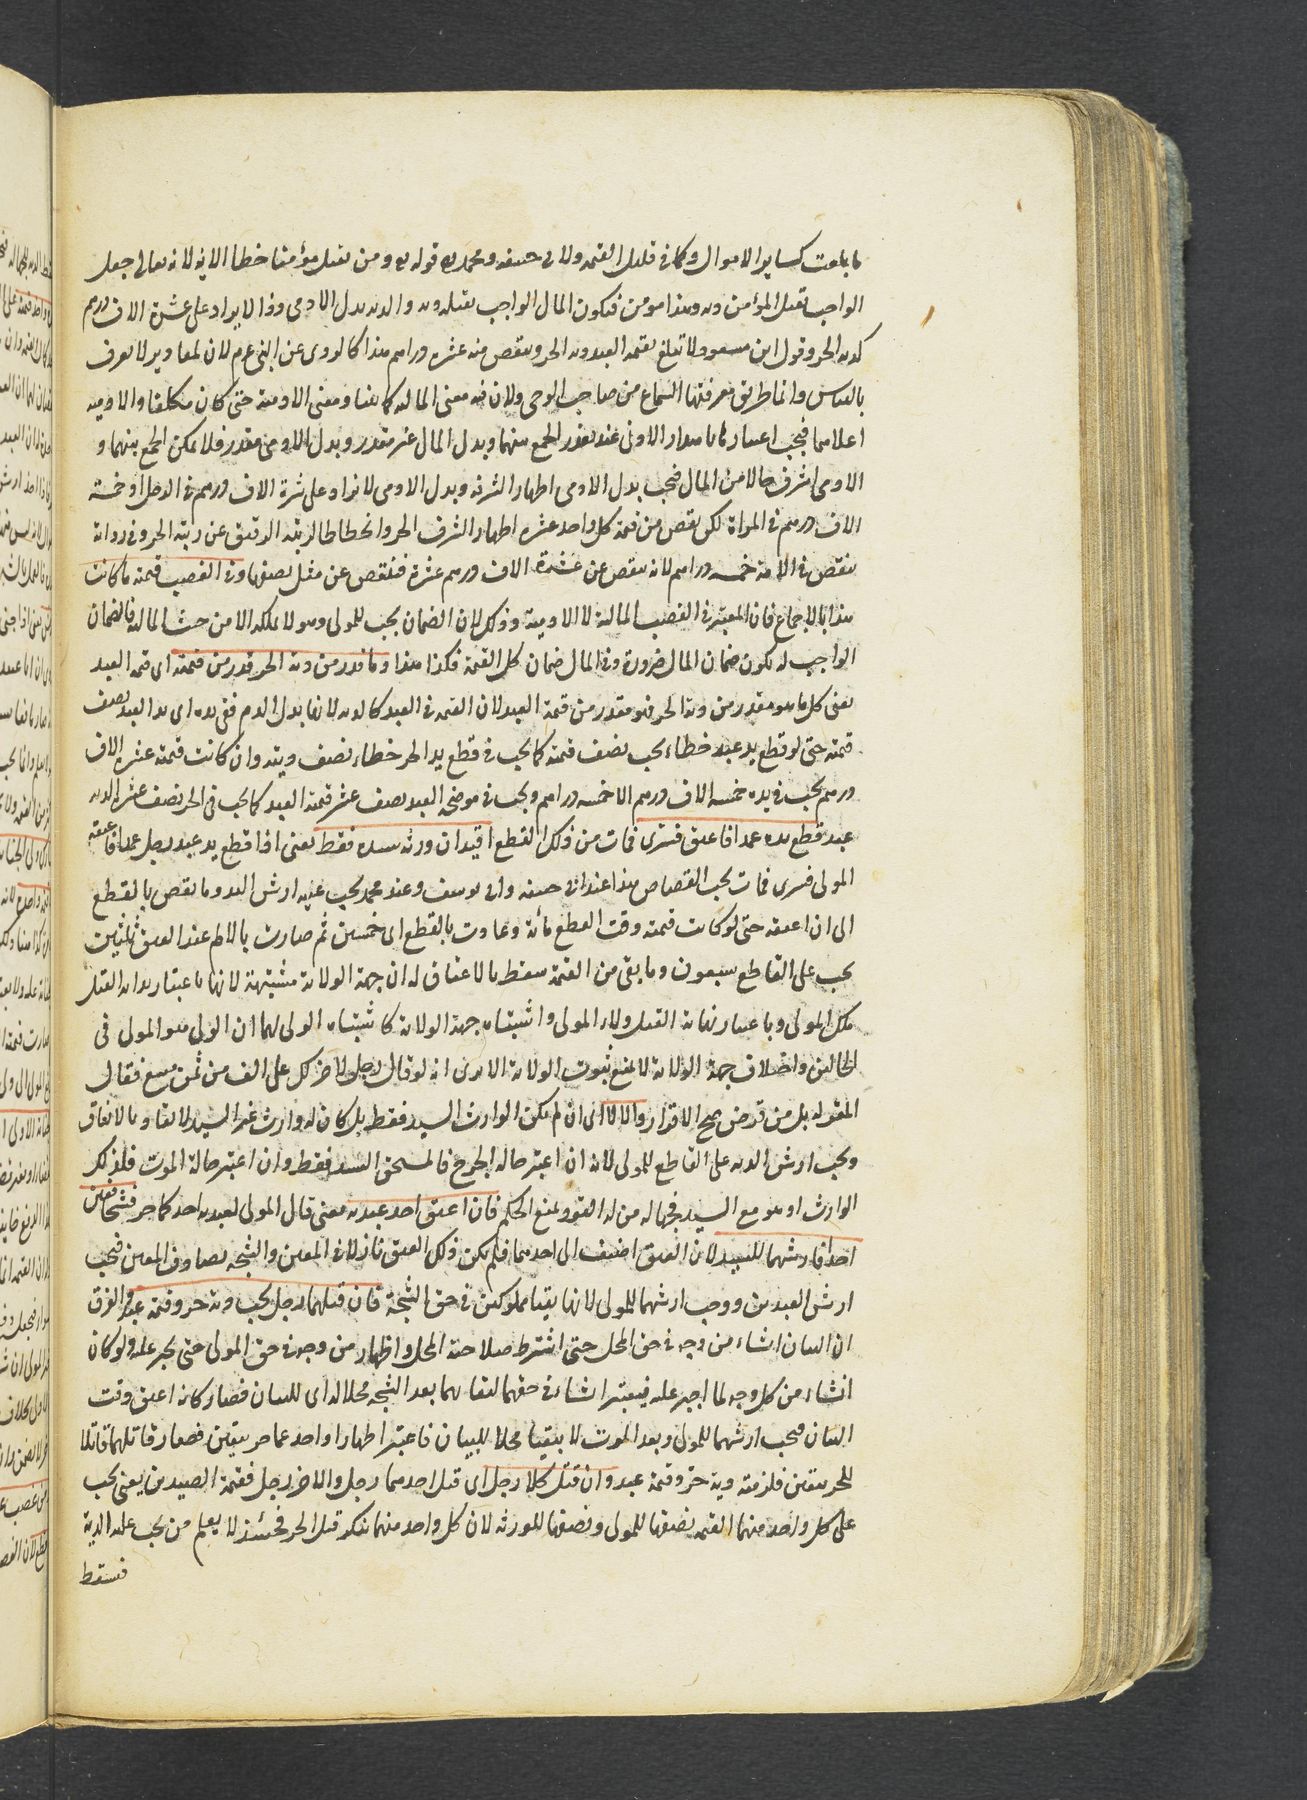 ما بلغت كساير الاموال وكما في قليل القيمة ولابي حنيفة ومحمد رح قوله تع ومن قتل مؤمنا خطا الاية لانه تعالى جعل
الواجب بقتل المؤمن دية وهذا مومن فيكون المال الواجب بقتله دية والدية بدل الادمي وذا لا يزاد على عشرة الاف درهم
كدية الحر وقول ابن مسعود لا تبلغ بقيمة العبد دية الحر وينقص منه عشرة دراهم هذا كالمروي عن النبي عم لان المقادير لا تعرف
بالقياس وانما طريق معرفتها السماع من صاحب الوحي ولان فيه معنى المالية كما بينا ومعنى الادمية حتى كان مكلفا والادمية
اعلاهما فيجب اعتبارها باهدار الادنى عند تعذر الجمع بينهما وبدل المال غير مقدر وبدل الادمي مقدر فلا يمكن الجمع بينهما و
الادمي اشرف حالا من المال فيجب بدل الادمي اظهارا لشرفه وبدل الادمي لا يزاد على عشرة الاف درهم في الرجل او خمسة
الاف درهم في المراة لكن ينقص من قيمة كل واحد عشرة اظهارا لشرف الحر وانحطاطا لرتبة الرقيق عن رتبة الحر وفي رواية
ينقص في الامة خمسة دراهم لانه ينقص عن عشرة الاف درهم عشرة فينقص عن مثل نصفها وفي الغصب قيمته ما كانت
هذا بالاجماع فان المعتبر في الغصب المالية لا الادمية وذلك لان الضمان يجب للمولى وهو لا يملكه الا من حيث المالية فالضمان
الواجب له يكون ضمان المال ضرورة وفي المال ضمان كل القيمة فكذا هذا وما قدر من دية الحر قدر من قيمته اى قيمة العبد
يعني كل ما هو مقدر من دية الحر فهو مقدر من قيمة العبد لان القيمة في العبد كالدية لانها بدل الدم ففي يده اى يد العبد نصف
قيمته حتى لو قطع يد عبد خطاء يجب نصف قيمته كما يجب في قطع يد الحر خطاء نصف ديته وان كانت قيمته عشرة الاف
درهم يجب في يده خمسة الاف درهم الا خمسة دراهم ويجب في موضحة العبد نصف عشر قيمة العبد كما يجب في الحر نصف عشر الدية
عبد قطع يده عمدا فاعتق فسرى فمات من ذلك القطع اقيد ان ورثه سيده فقط يعني اذا قطع يد عبد رجل عمدا فاعتقه
المولى فسرى فمات يجب القصاص هذا عند ابي حنيفة وابي يوسف وعند محمد يجب عليه ارش اليد وما نقص بالقطع
الى ان اعتقه حتى لو كانت قيمته وقت القطع مائة وعادت بالقطع الى خمسين ثم صارت بالالم عند العتق ثلثين
يجب على القاطع سبعون وما بقي من القيمة سقط بالاعتاق له ان جهة الولاية مشتبهة لانها باعتبار بداية القتل
ملك المولى وباعتبار نهاية القتل ولاء المولى واشتباه جهة الولاية كاشتباه الولى لهما ان الولى هو المولى في
الحالين واختلاف جهة الولاية لا يمنع ثبوت الولاية الا يرى انه لو قال رجل لاخر لك على الف من ثمن مبيع فقال
المقر له بل من قرض يصح الاقرار والا لا اى ان لم يكن الوارث السيد فقط بل كان له وارث غير السيد لا يقاد بالاتفاق
ويجب ارش اليد على القاطع للمولى لانه ان اعتبر حالة الجرح فالمستحق السيد فقط وان اعتبر حالة الموت فلذلك
الوارث او هو مع السيد فجهالة من له القود يمنع الحكم فان اعتق احد عبديه يعني قال المولى لعبديه احدكما حر فشجا فعين
احدا فارشهما للسيد لان العتق اضيف الى احدهما فلم يكن ذلك العتق نازلا في المعين والشجة يصادف المعين فيجب
ارش العبدين ووجب ارشهما للمولى لانهما بقيا مملوكين في حق الشجة فان قتلهما رجل يجب دية حر وقيمة عبد والفرق
ان البيان انشاء من وجه في حق المحل حتى اشترط صلاحية المحل واظهار من وجه في حق المولى حتى يجبر عليه ولو كان
انشاء من كل وجه لما اجبر عليه فيعتبر انشاء في حقهما لبقائهما بعد الشجة محلا له اى للبيان فصار كانه اعتق وقت
البيان فيجب ارشهما للمولى وبعد الموت لا يبقيا محلا للبيان فاعتبر اظهارا واحدهما حر بيقين فصار قاتلهما قاتلا
للحر بيقين فلزمته دية حر وقيمة عبد وان قتل كلا رجل اى قتل احدهما رجل والاخر رجل فقيمة العبدين يعني يجب
على كل واحد منهما القيمة نصفها للمولى ونصفها للورثة لان كل واحد منهما ينكر قتل الحر فحينئذ لا يعلم من يجب عليه الدية
فسقط